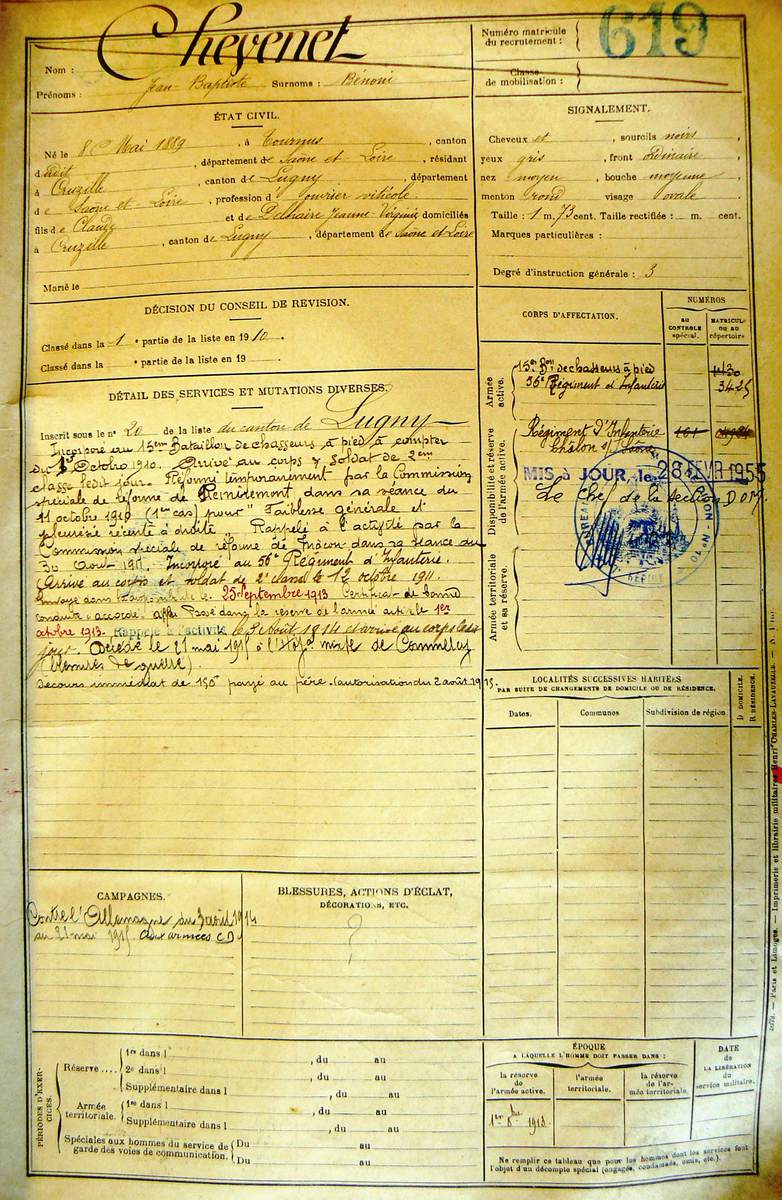 Nom : Chevenet
Prénoms : Jean-Baptiste Surnoms : Bénoni
Numéro matricule du recrutement : 619
Classe de mobilisation :
ÉTAT CIVIL.
Né le 8 Mai 1889, à Tournus, canton
dudit, département de Saône et Loire, résidant
à Cruzille, canton de Lugny, département
de Saône et Loire, profession d'ouvrier viticole
fils de Claude et de Delhaire Jeanne Virginie domiciliés
à Cruzille, canton de Lugny, département de Saône et Loire
Marié le
SIGNALEMENT.
Cheveux et, sourcils noirs,
yeux gris, front ordinaire
nez moyen, bouche moyenne
menton rond visage ovale
Taille : 1 m. 73 cent. Taille rectifiée : m. cent.
Marques particulières :
Degré d'instruction générale : 3
DÉCISION DU CONSEIL DE REVISION.
Classé dans la 1e partie de la liste en 1910.
Classé dans la e partie de la liste en 19
DÉTAIL DES SERVICES ET MUTATIONS DIVERSES.
Inscrit sous le n° 20 de la liste du canton de Lugny
Incorporé au 15em Bataillon de chasseurs à pied à compter
du Octobre 1910. Arrivé au corps & soldat de 2em
classe ledit jour. Réformé temporairement par la Commission
spéciale de réforme de Remiremont dans sa séance du
11 octobre 1910 (1er cas) pour "Faiblesse Générale et
pleurésie récente à droite. Rappelé à l'activité par la
Commission spéciale de réforme de Mâcon dans sa séance du
30 Aout 1911. Incorporé au 56e Régiment d'Infanterie.
(Arrivé au corps et soldat de 2e classe le 12 octobre 1911.
Envoyé dans la disponibilité le 25 septembre 1913 Certificat de bonne
conduite "accordé". Passé dans la réserve de l'armée active le 1er
octobre 1913. Rappelé à l'activité le 3 Août 1914 et arrivé au corps le dit
jour. Décédé le 21 mai 1915 à l'Hop. mixte de Commercy
(blessures de guerre).
Secours immédiat de 150f payé au père. (autorisation du 2 août 1915.
CORPS D'AFFECTATION.
NUMÉROS
AU CONTROLE spécial.
MATRICULE OU AU répertoire
Armée active.
15e Bon de chasseurs à pied 1130
56e Régiment d'Infanterie 3425
Disponibilité et réserve de l'armée active.
Régiment d'Infanterie 161
Chalon s/ Saône
MIS A JOUR, le 28 FEVR 1955
Le Chef de la section D on M.
BUREAU
N° 10
Armée territoriale et sa réserve.
LOCALITÉS SUCCESSIVES HABITÉES
PAR SUITE DE CHANGEMENTS DE DOMICILE OU DE RÉSIDENCE.
Dates. Communes Subdivision de région D DOMICILE. R RÉSIDENCE.
CAMPAGNES.
Contre l'Allemagne du 3 août 1914
au 21 mai 1915 aux armées CD
BLESSURES, ACTIONS D'ÉCLAT,
DÉCORATIONS, ETC.
?
PÉRIODES D'EXERCICES.
Réserve....
1re dans l , du au
2e dans l , du au
Supplémentaire dans l , du au
Armée territoriale.
1re dans l , du au
Supplémentaire dans l , du au
Spéciales aux hommes du service de garde des voies de communication.
Du au
Du au
ÉPOQUE
A LAQUELLE L'HOMME DOIT PASSER DANS :
la réserve de l'armée active.
l'armée territoriale.
la réserve de l'armée territoriale.
DATE de LA LIBÉRATION du service militaire.
1er 1913.
Ne remplir ce tableau que pour les hommes dont les services font
l'objet d'un décompte spécial (engagés, condamnés, omis, etc.).
Paris et Limoges. — Imprimerie et librairie militaires Henri CHARLES-LAVAUZELLE